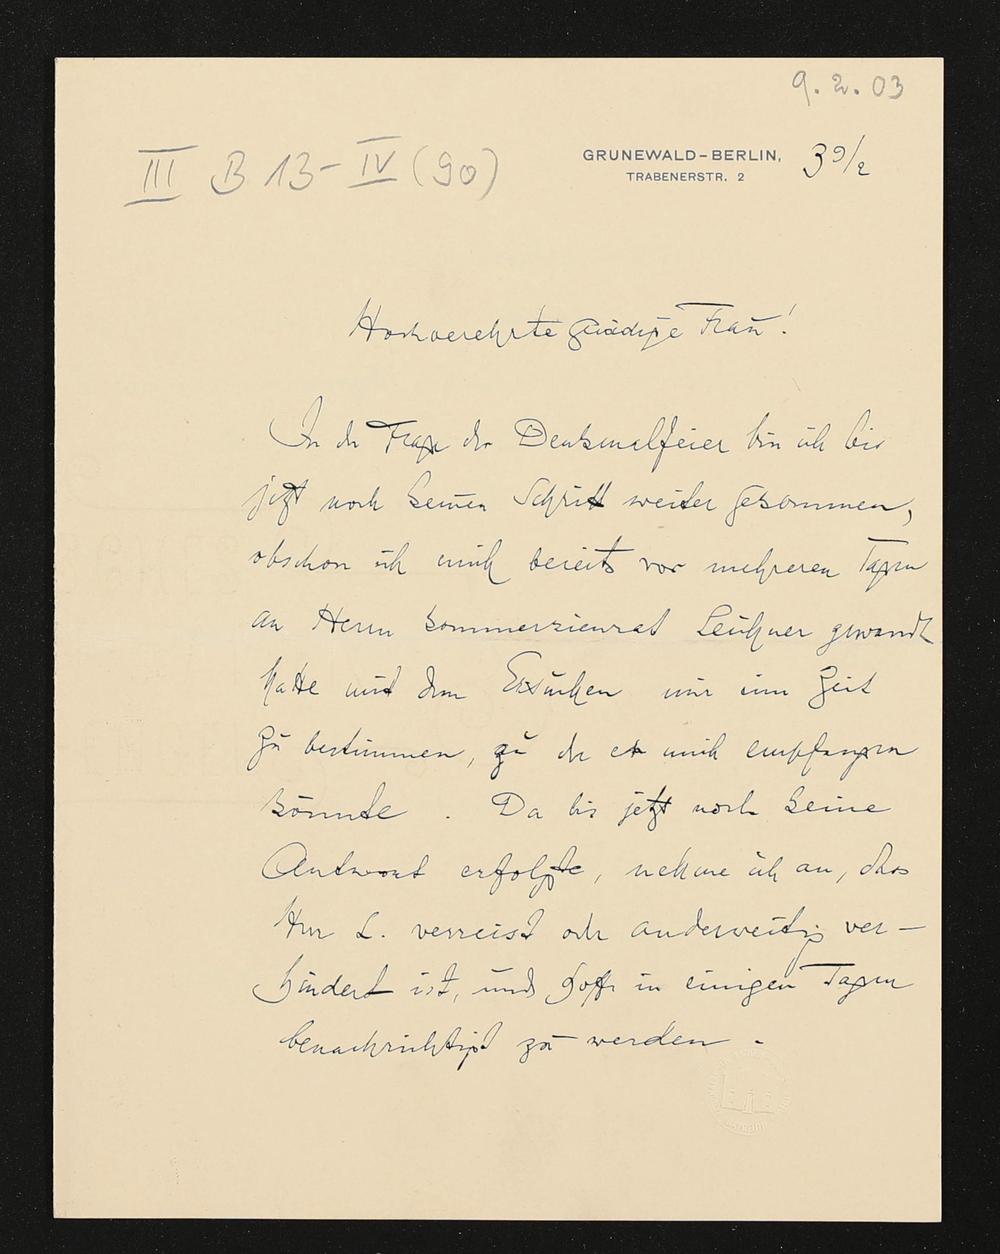 9. 2. 03
III B 13-IV (90)
GRUNEWALD-BERLIN, 3 9/2
TRABENERSTR. 2
Hochverehrte gnädige Frau!
In der Frage der Denkmalfeier bin ich bis
jetzt noch keinen Schritt weiter gekommen,
obschon ich mich bereits vor mehreren Tagen
an Herrn Kommerzienrat Leichner gewandt
hatte mit dem Ersuchen mir eine Zeit
zu bestimmen, zu der er mich empfangen
könnte. Da bis jetzt noch keine
Antwort erfolgte, nehme ich an, dass
Herr L. verreist oder anderweitig ver-
hindert ist, und hoffe in einigen Tagen
benachrichtigt zu werden.